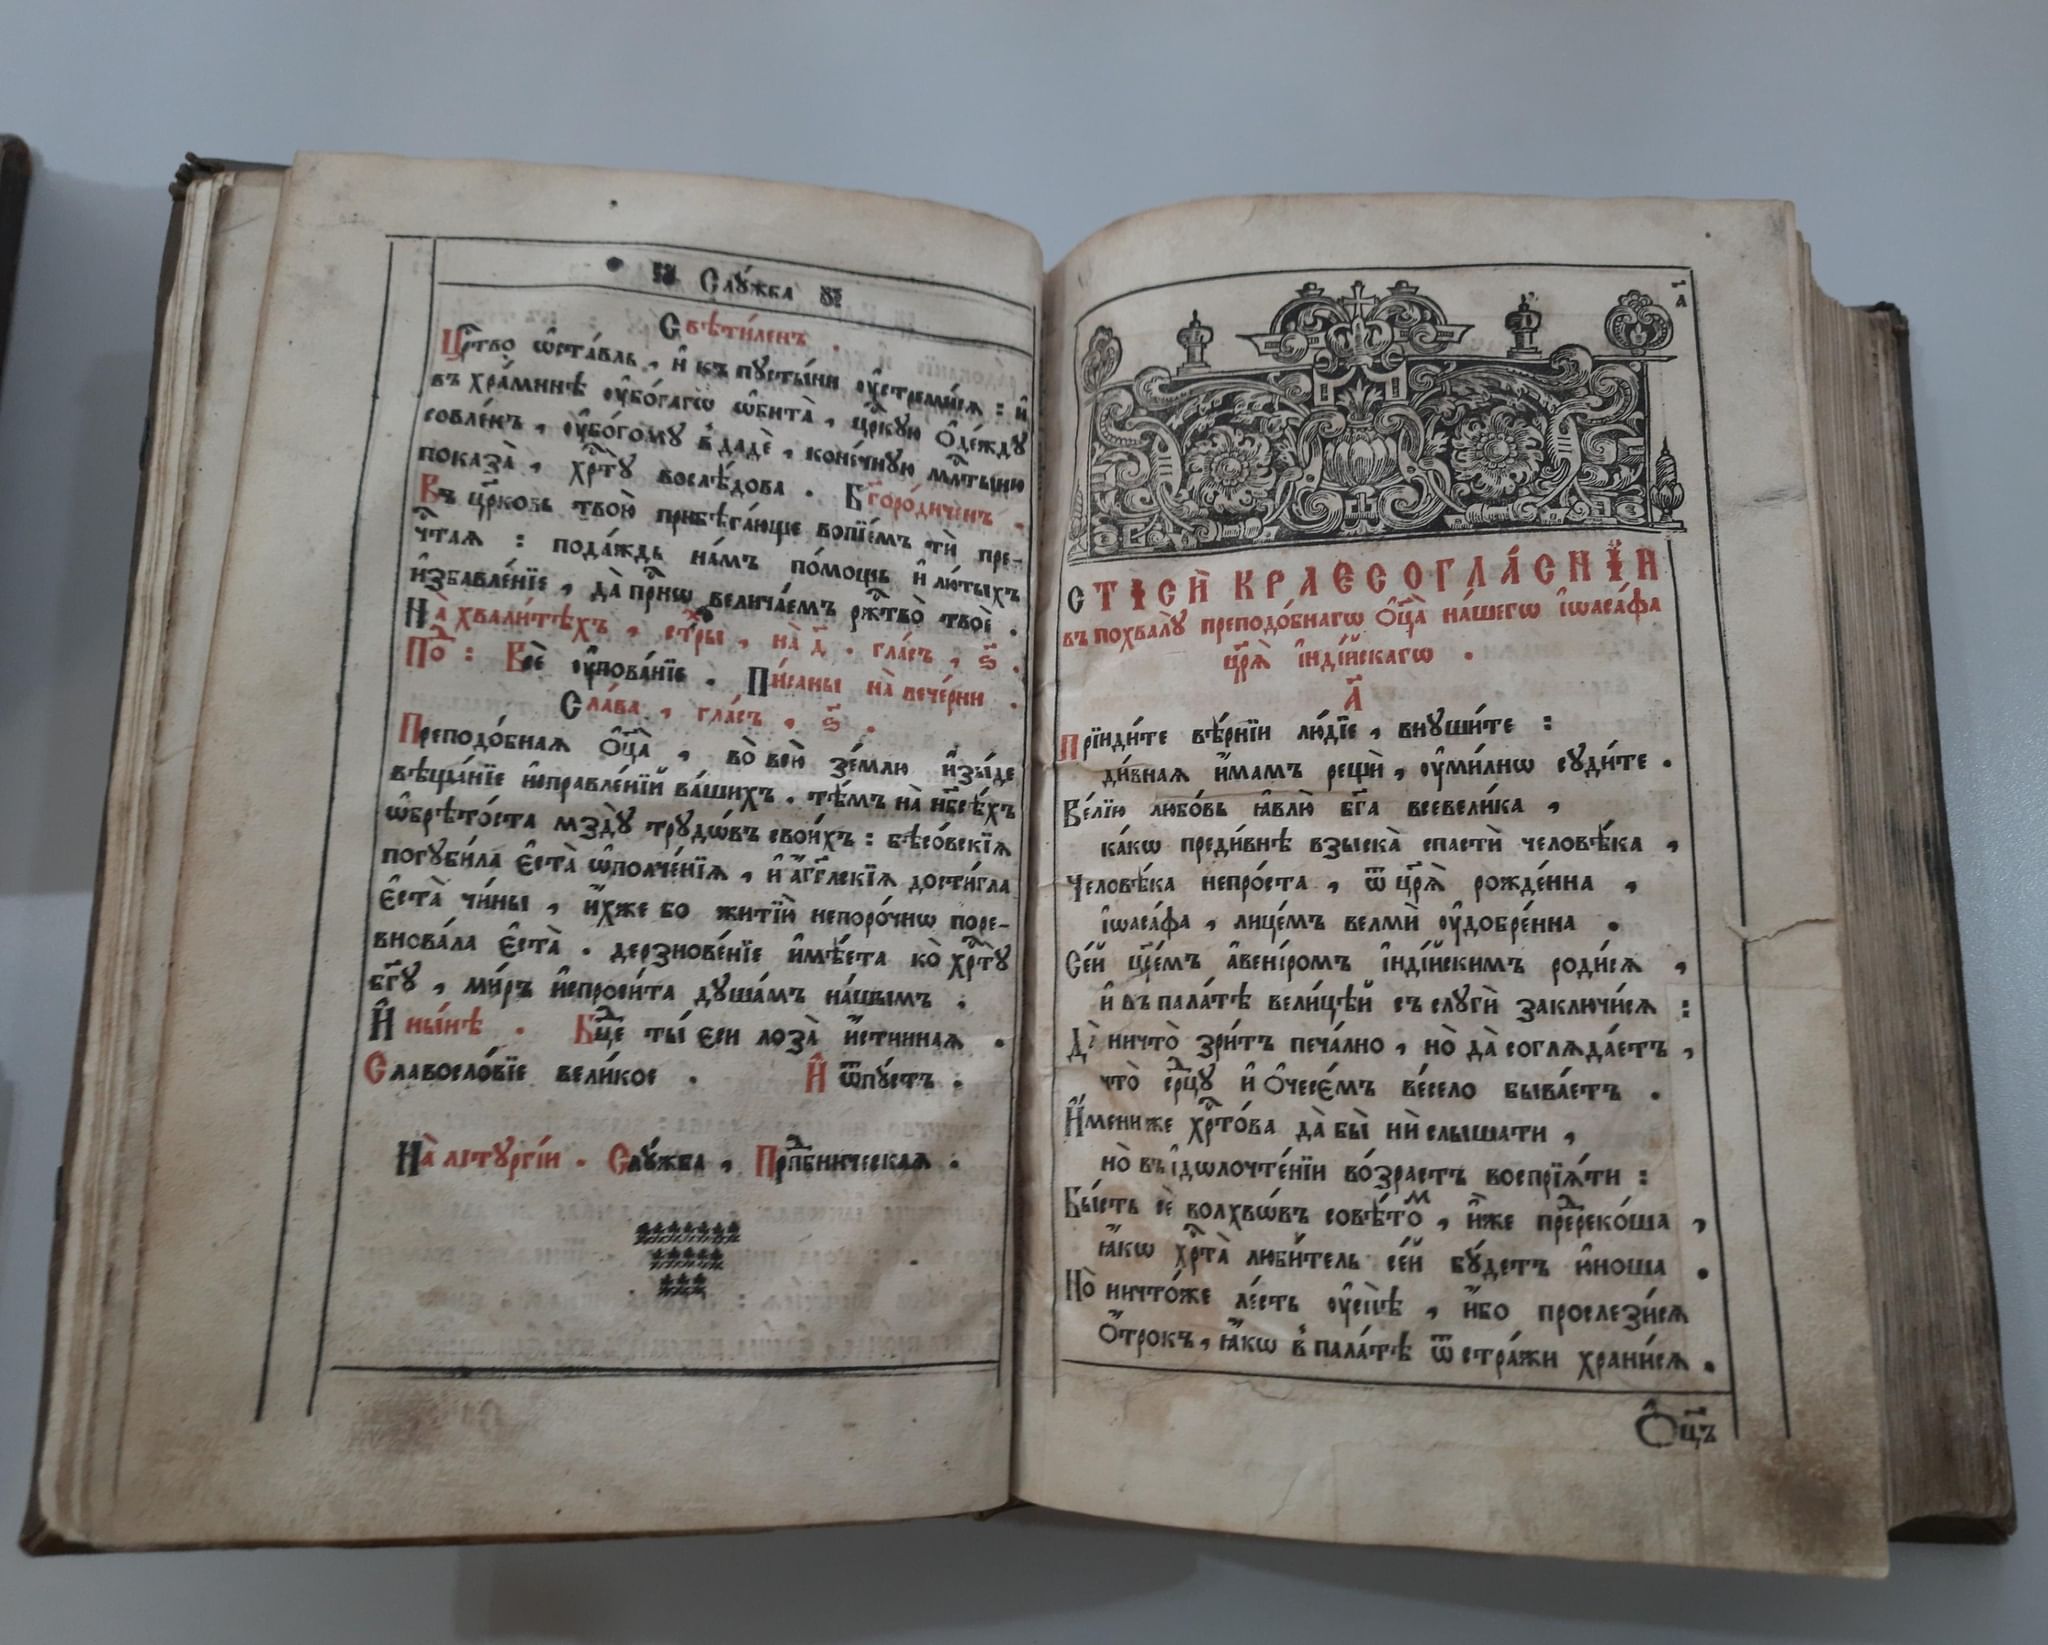 Слꙋ́жба
Свѣти́ленъ .
Црⷭ҇тво ѡ҆ста́вль , и҆ къ пꙋсты́ни ᲂу҆стреми́сѧ : и҆
въ хра́минѣ ᲂу҆бо́гагѡ ѡ҆бита̀ , цр҃кꙋю ѻ҆де́ждꙋ
совле́къ , ᲂу҆бо́гомꙋ в̾дадѐ , коне́чнꙋю мл҃тыню
показа̀ , хрⷭ҇тꙋ̀ послѣ́дова . Бг҃оро́диченъ .
Въ цр҃ковь твою̀ прибѣга́юще вопїе́мъ тѝ пре-
чⷭ҇таѧ : пода́ждь на́мъ по́мощь и҆ лю́тыхъ
и҆збавле́нїе , да̀ прⷭ҇нѡ велича́емъ рж҃тво̀ твоѐ .
На̀ хвали́тѣхъ , стⷯры , на̀ д҃ . гла́съ , ѕ҃ .
Поⷣ : Всѐ ᲂу҆пова́нїе . Пи́саны на̀ вече́рни .
Сла́ва , гла́съ , ѕ҃ .
Преподо́бнаѧ ѻ҆ц҃а̀ , во̀ всю̀ зе́млю и҆зы́де
вѣща́нїе и҆справле́нїй ва́шихъ . тѣ́мъ на̀ нб҃сѣ́хъ
ѡ҆брѣто́ста мздꙋ̀ трꙋдѡ́въ свои́хъ : бѣсо́вскїѧ
погꙋби́ла є҆ста̀ ѡ҆полче́нїѧ , и҆ а҆́гг҃лскїѧ дости́гла
є҆ста̀ чи́ны , и҆́хже бо житїю̀ непоро́чнѡ поре-
внова́ла є҆ста̀ . дерзнове́нїе и҆мѣ́ста ко̀ хрⷭ҇тꙋ̀
бг҃ꙋ , ми́ръ и҆спроси́та дꙋша́мъ на́шымъ .
И҆ ны́нѣ . Бцⷣе ты̀ єси лоза̀ и҆́стиннаѧ .
Славосло́вїе вели́кое . И҆ ѿпꙋ́стъ .
На̀ лїтꙋргі́и . Слꙋ́жба , Прпⷣбническаѧ .
СТІСЍ КРАЕСОГЛА́СНІИ
въ похва́лꙋ преподо́бнагѡ ѻ҆ц҃а̀ на́шегѡ і҆ѡаса́фа
цр҃ѧ̀ і҆нді́йскагѡ .
а҃
Прїиди́те вѣ́рнїи лю́дїе , внꙋши́те :
ди́внаѧ и҆́мамъ рещѝ , ᲂу҆ми́лнѡ сꙋди́те .
Ве́лїю любо́вь ꙗ҆влю̀ бг҃а всевели́ка ,
ка́кѡ преди́внѣ взыска̀ спастѝ человѣ́ка ,
Человѣ́ка непро́ста , ѿ цр҃ѧ̀ рожде́нна ,
і҆ѡаса́фа , лице́мъ велмѝ ᲂу҆добре́нна .
Се́й цр҃е́мъ а҆вені́ромъ і҆нді́йскимъ роди́сѧ ,
и҆ въ пала́тѣ вели́цѣй съ слꙋгѝ заключи́сѧ :
Да̀ ничто̀ зри́тъ печа́лно , но̀ да̀ соглѧда́етъ ,
что̀ срⷣцꙋ и҆ ѻ҆чесе́мъ ве́село быва́етъ .
И҆́мени же хрⷭ҇то́ва да̀ бы̀ нѝ слы́шати ,
но̀ въ і҆дѡлочте́нїи во́зрастъ воспрїѧ́ти :
Бы́сть сѐ волхвѡ́въ совѣ́тоⷨ , и҆̀же прⷣереко́ша ,
ꙗ҆́кѡ хрⷭ҇та̀ люби́тель се́й бꙋ́детъ ю҆́ноша .
Но̀ ничто́же ле́сть ᲂу҆спѣ̀ , и҆́бо прослези́сѧ
ѻ҆́трокъ , ꙗ҆́кѡ в̾ пала́тѣ ѿ стра́жи храни́сѧ .
Ѻ҆ц҃ъ